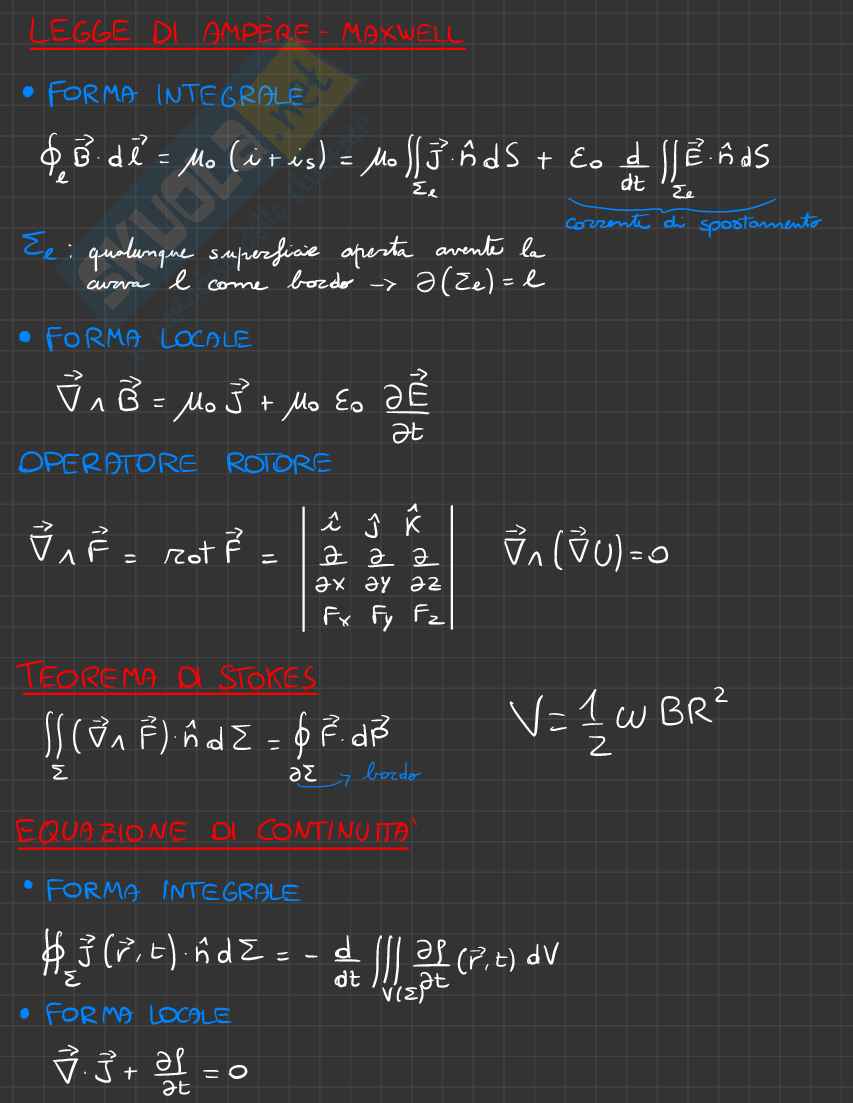 LEGGE DI AMPÈRE - MAXWELL
• FORMA INTEGRALE
∮ₗ B⃗ · dl⃗ = μ₀ (i + iₛ) = μ₀ ∬_Σₑ J⃗ · n̂ dS + ε₀ d/dt ∬_Σₑ E⃗ · n̂ dS
corrente di spostamento
Σₑ : qualunque superficie aperta avente la
curva l come bordo → ∂(Σₑ) = l
• FORMA LOCALE
∇⃗ ∧ B⃗ = μ₀ J⃗ + μ₀ ε₀ ∂E⃗/∂t
OPERATORE ROTORE
∇⃗ ∧ F⃗ = rot F⃗ = | î ĵ k̂ | ∇⃗ ∧ (∇⃗U) = 0
| ∂/∂x ∂/∂y ∂/∂z |
| Fx Fy Fz |
TEOREMA DI STOKES
∬_Σ (∇⃗ ∧ F⃗) · n̂ dΣ = ∮_∂Σ F⃗ · dP⃗
→ bordo
V = 1/2 ω BR²
EQUAZIONE DI CONTINUITA'
• FORMA INTEGRALE
∯_Σ J⃗ (r⃗, t) · n̂ dΣ = - d/dt ∭_V(Σ) ∂ρ/∂t (r⃗, t) dV
• FORMA LOCALE
∇⃗ · J⃗ + ∂ρ/∂t = 0
SKUOLA.net